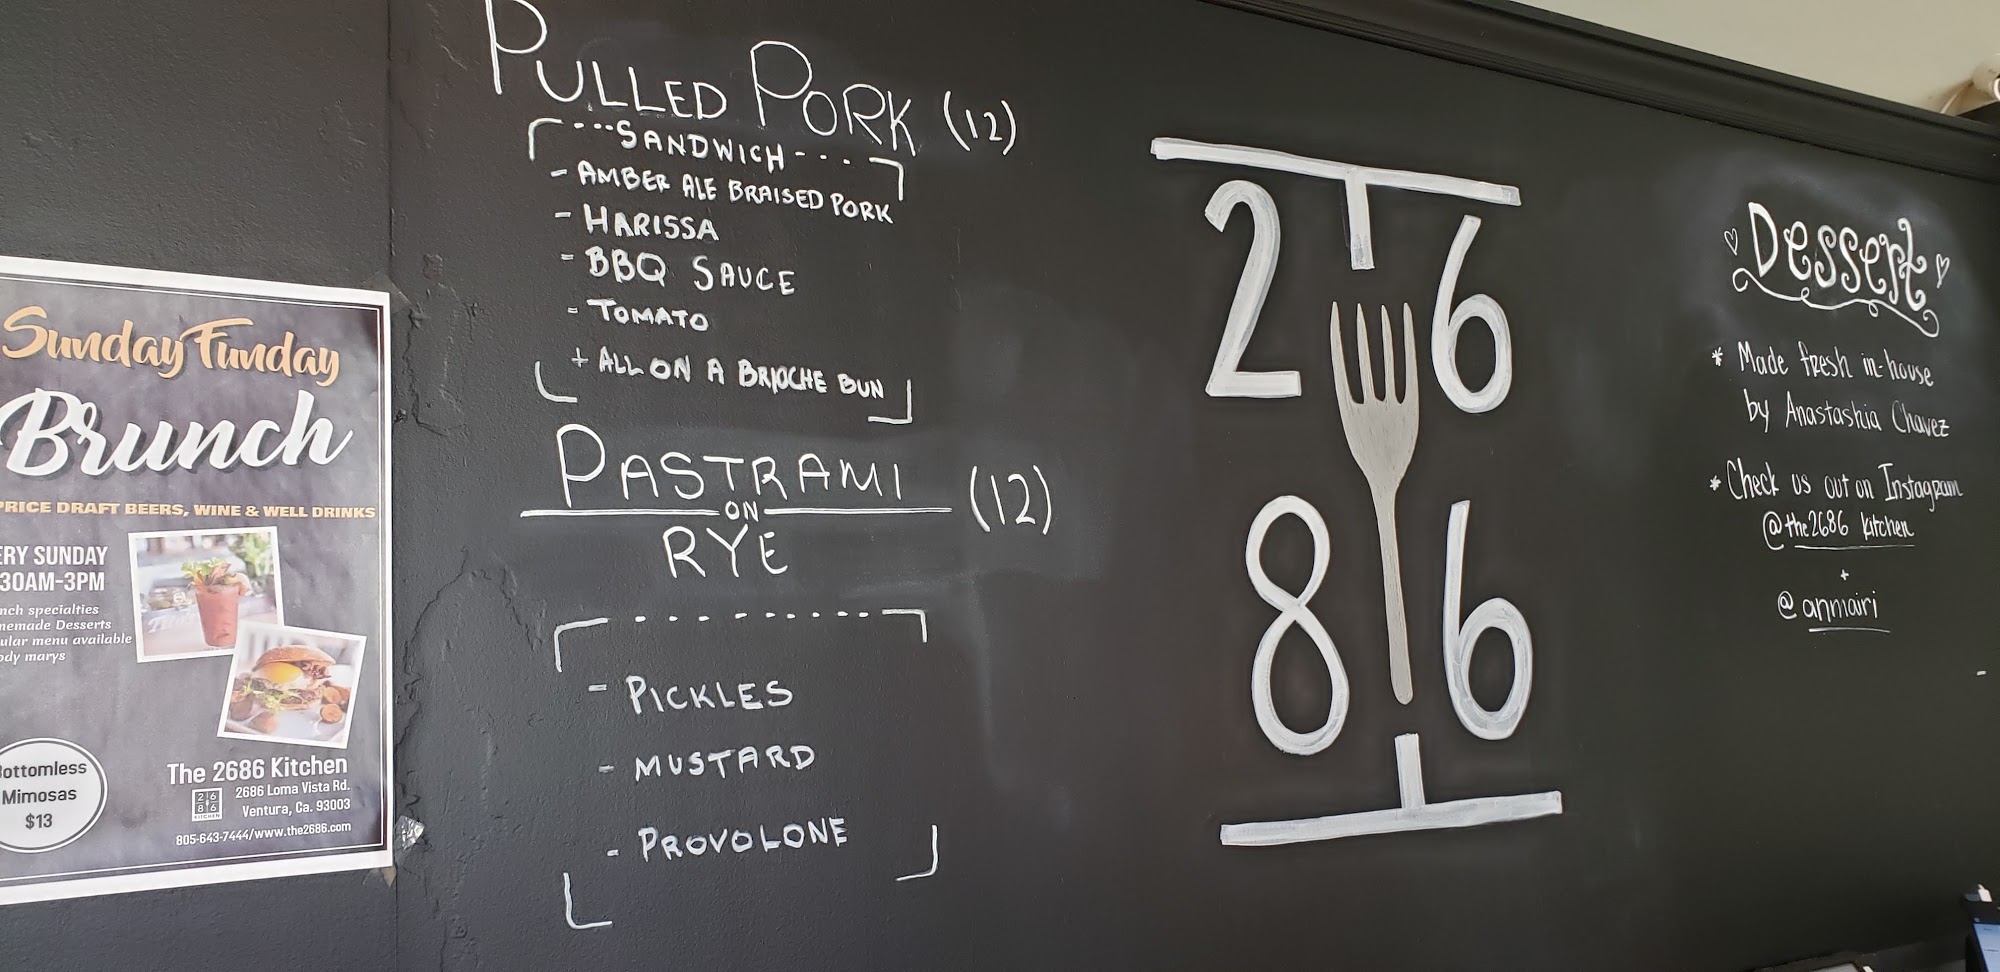 Sunday Funday
Brunch
PRICE DRAFT BEERS, WINE & WELL DRINKS
SUNDAY
30AM-3PM
specialties
Desserts
menu available
marys
Bottomless
Mimosas
$13
The 2686 Kitchen
2686 Loma Vista Rd.
Ventura, Ca. 93003
805-643-7444/www.the2686.com
26
86
KITCHEN
PULLED PORK (12)
SANDWICH
- AMBER ALE BRAISED PORK
- HARISSA
- BBQ SAUCE
- TOMATO
+ ALL ON A BRIOCHE BUN
PASTRAMI (12)
ON
RYE
- PICKLES
- MUSTARD
- PROVOLONE
26
86
Dessert
* Made fresh in-house
by Anastashia Chavez
* Check us out on Instagram
@the2686 kitchen
+
@anmairi